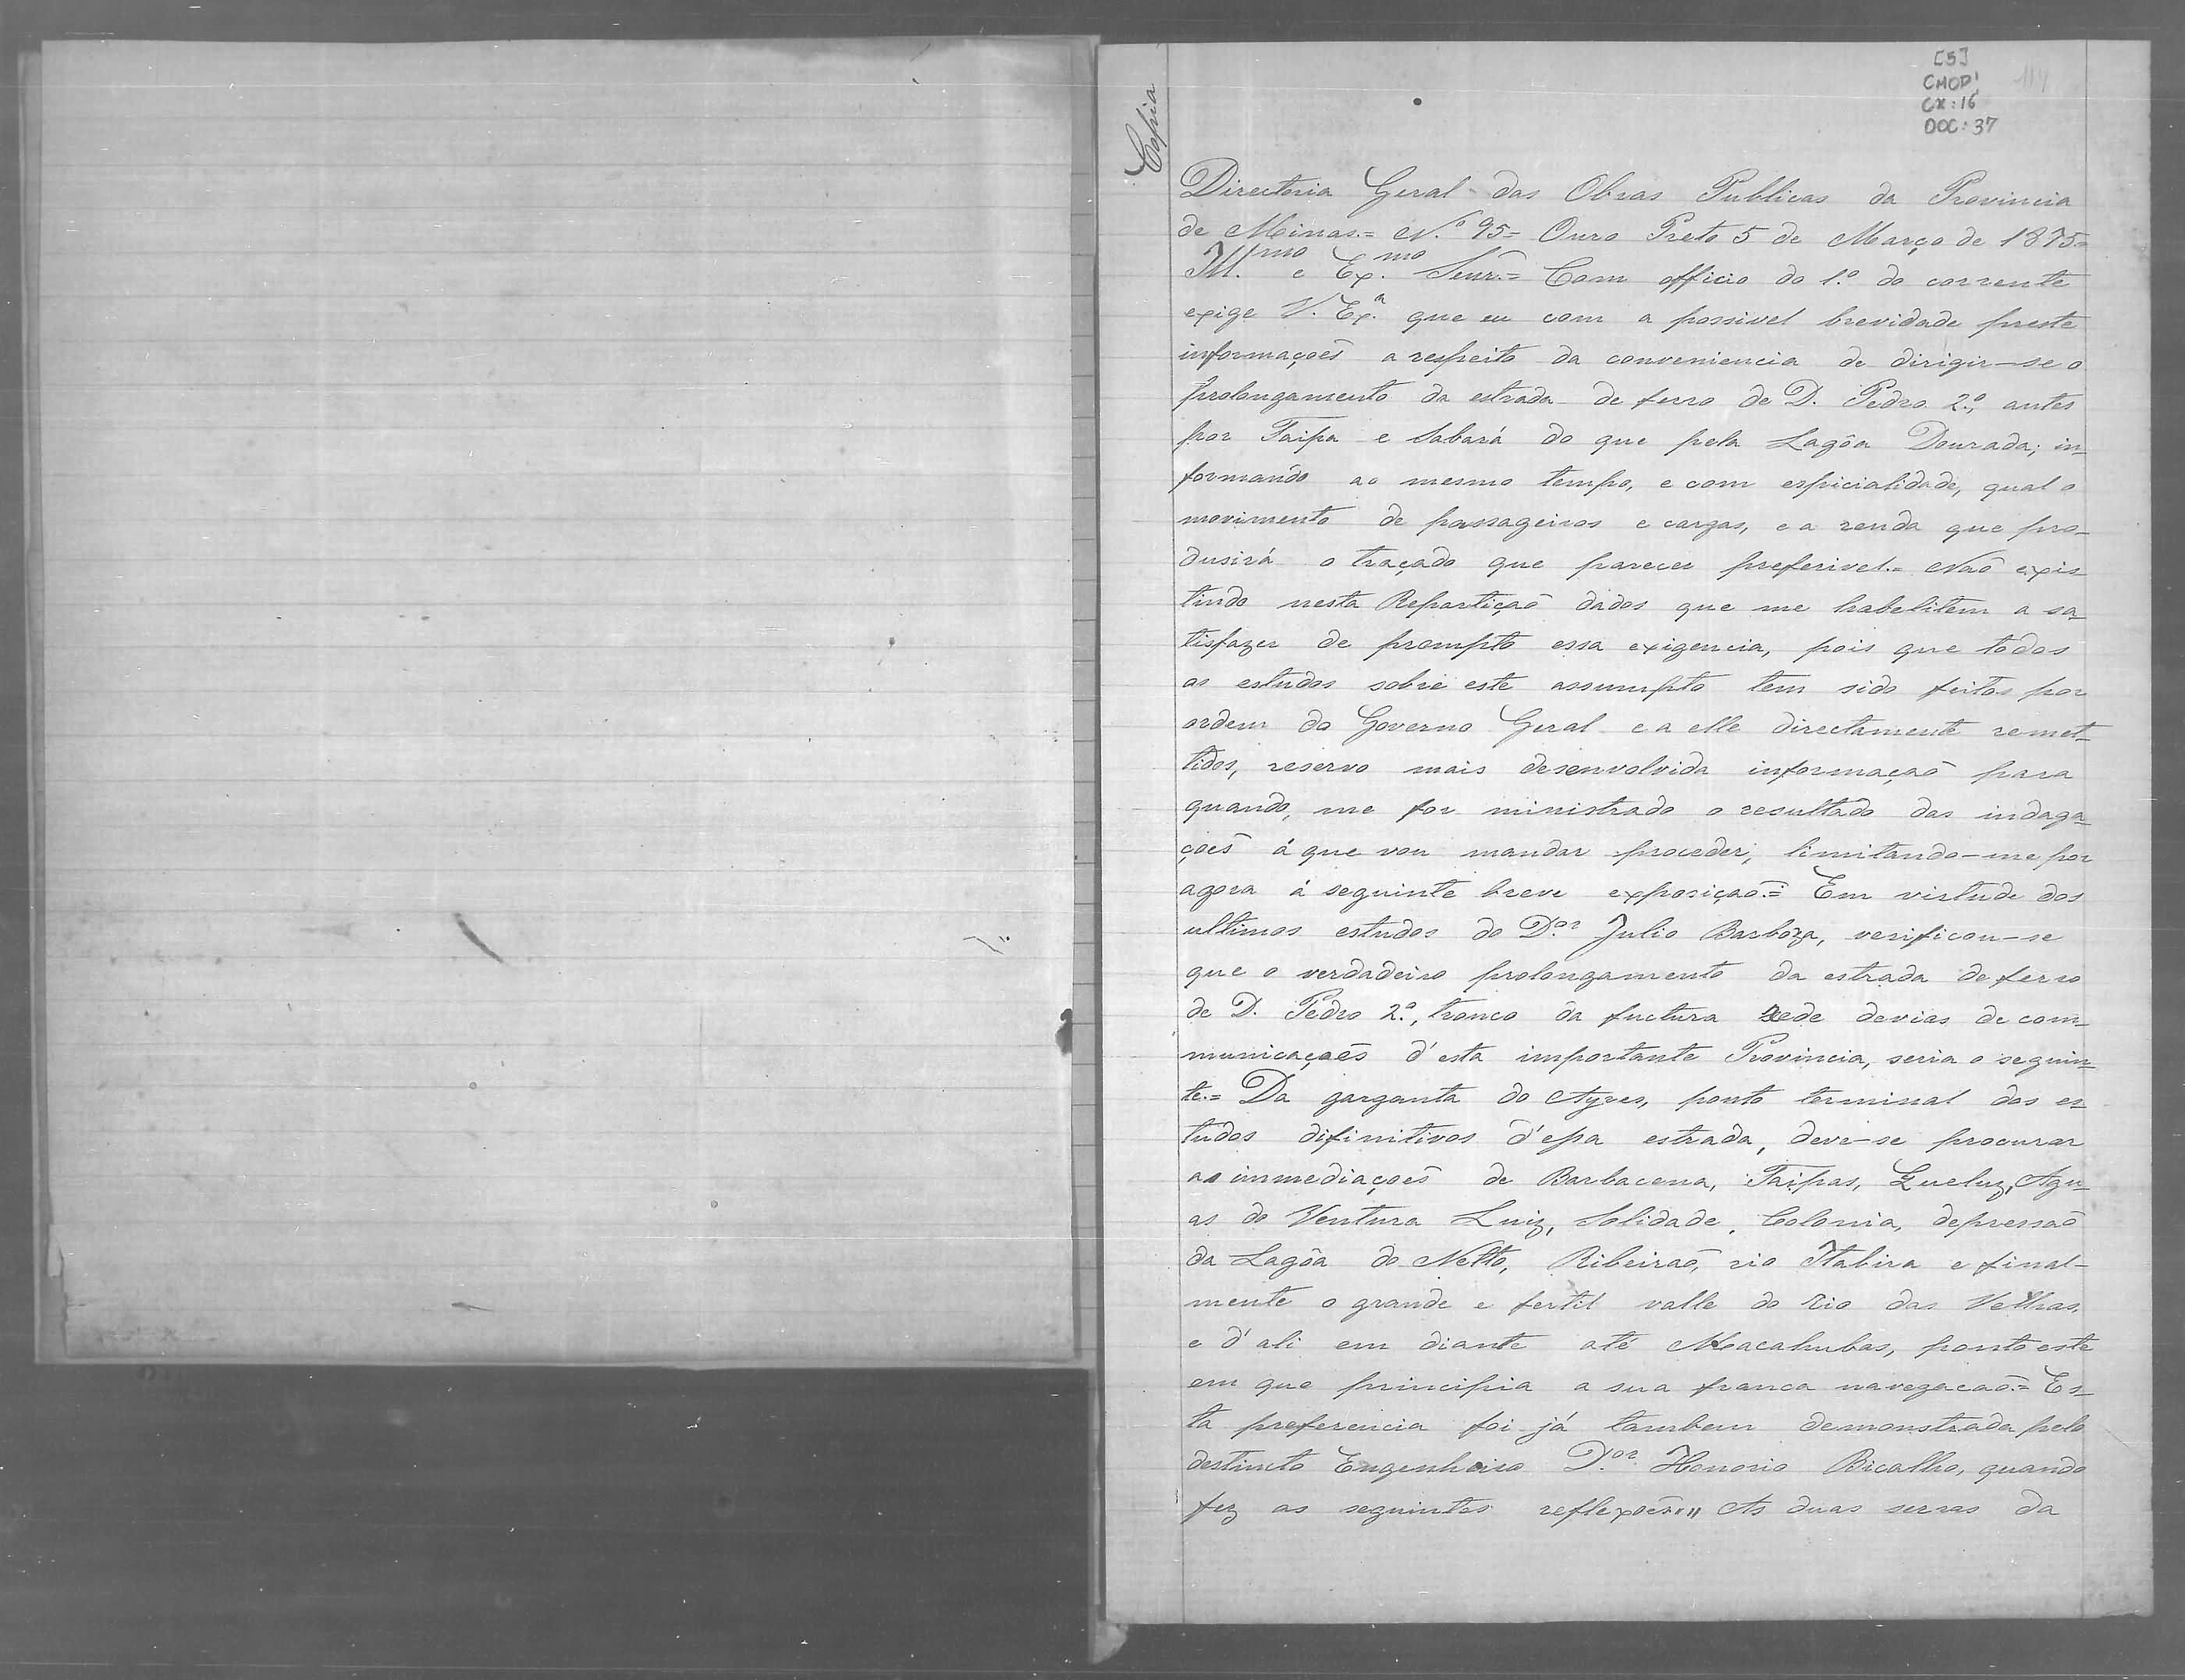 [5]
CMOP!
CX:16
DOC:37
114
Copia
Directoria Geral das Obras Publicas da Provincia
de Minas.= N.º 95= Ouro Preto 5 de Março de 1875=
Ill.mo e Ex.mo Senr.= Com officio do 1.º do corrente
exige V. Ex.ª que eu com a possivel brevidade preste
informaçoẽs a respeito da conveniencia de dirigir-se o
prolongamento da estrada de ferro de D. Pedro 2.º, antes
por Taipa e Sabará do que pela Lagôa Dourada; in-
formando ao mesmo tempo, e com espicialidade, qual o
movimento de passageiros e cargas, e a renda que pro-
dusirá o traçado que parecer preferivel.= Naõ exis-
tindo nesta Repartiçaõ dados que me habelitem a sa-
tisfazer de prompto essa exigencia, pois que todos
os estudos sobre este assumpto tem sido feitos por
ordem do Governo Geral e a elle directamente remet-
tidos, reservo mais desenvolvida informaçaõ para
quando, me for ministrado o resultado das indaga-
çoẽs á que vou mandar proceder, limitando-me por
agora á seguinte breve exposiçaõ.= Em virtude dos
ultimos estudos do D.or Julio Barboza, verificou-se
que o verdadeiro prolongamento da estrada de ferro
de D. Pedro 2.º, tronco da fuctura Rede devias de com-
municaçoẽs d'esta importante Provincia, seria o seguin-
te.= Da garganta do Ayres, ponto terminal dos es-
tudos difinitivos d'essa estrada, deve-se procurar
as immediaçoẽs de Barbacena, Taipas, Queluz, Agu-
as do Ventura Luiz, Solidade, Colonia, depressaõ
da Lagôa do Netto, Ribeiraõ, rio Itabira e final-
mente o grande e fertil valle do Rio das Velhas,
e d'ali em diante até Macahubas, ponto este
em que principia a sua franca navegacaõ.= Es-
ta preferencia foi já tambem demonstrada pelo
destincto Engenheiro D.or Honorio Bicalho, quando
fez as seguintes reflexoẽs:" As duas serras da